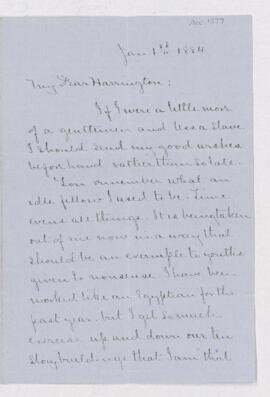 Jan 1st 1884
My Dear Harrington:
If I were a little more
of a gentleman and less a slave
I should send my good wishes
beforehand rather than so late.
You remember what an
idle fellow I used to be. Time
evens all things. It is being taken
out of me now in a way that
should be an example to youths
given to nonsense. I have been
worked like an Egyptian for the
past year. but I get so much
exercise up and down our ten
story buildings that I am that